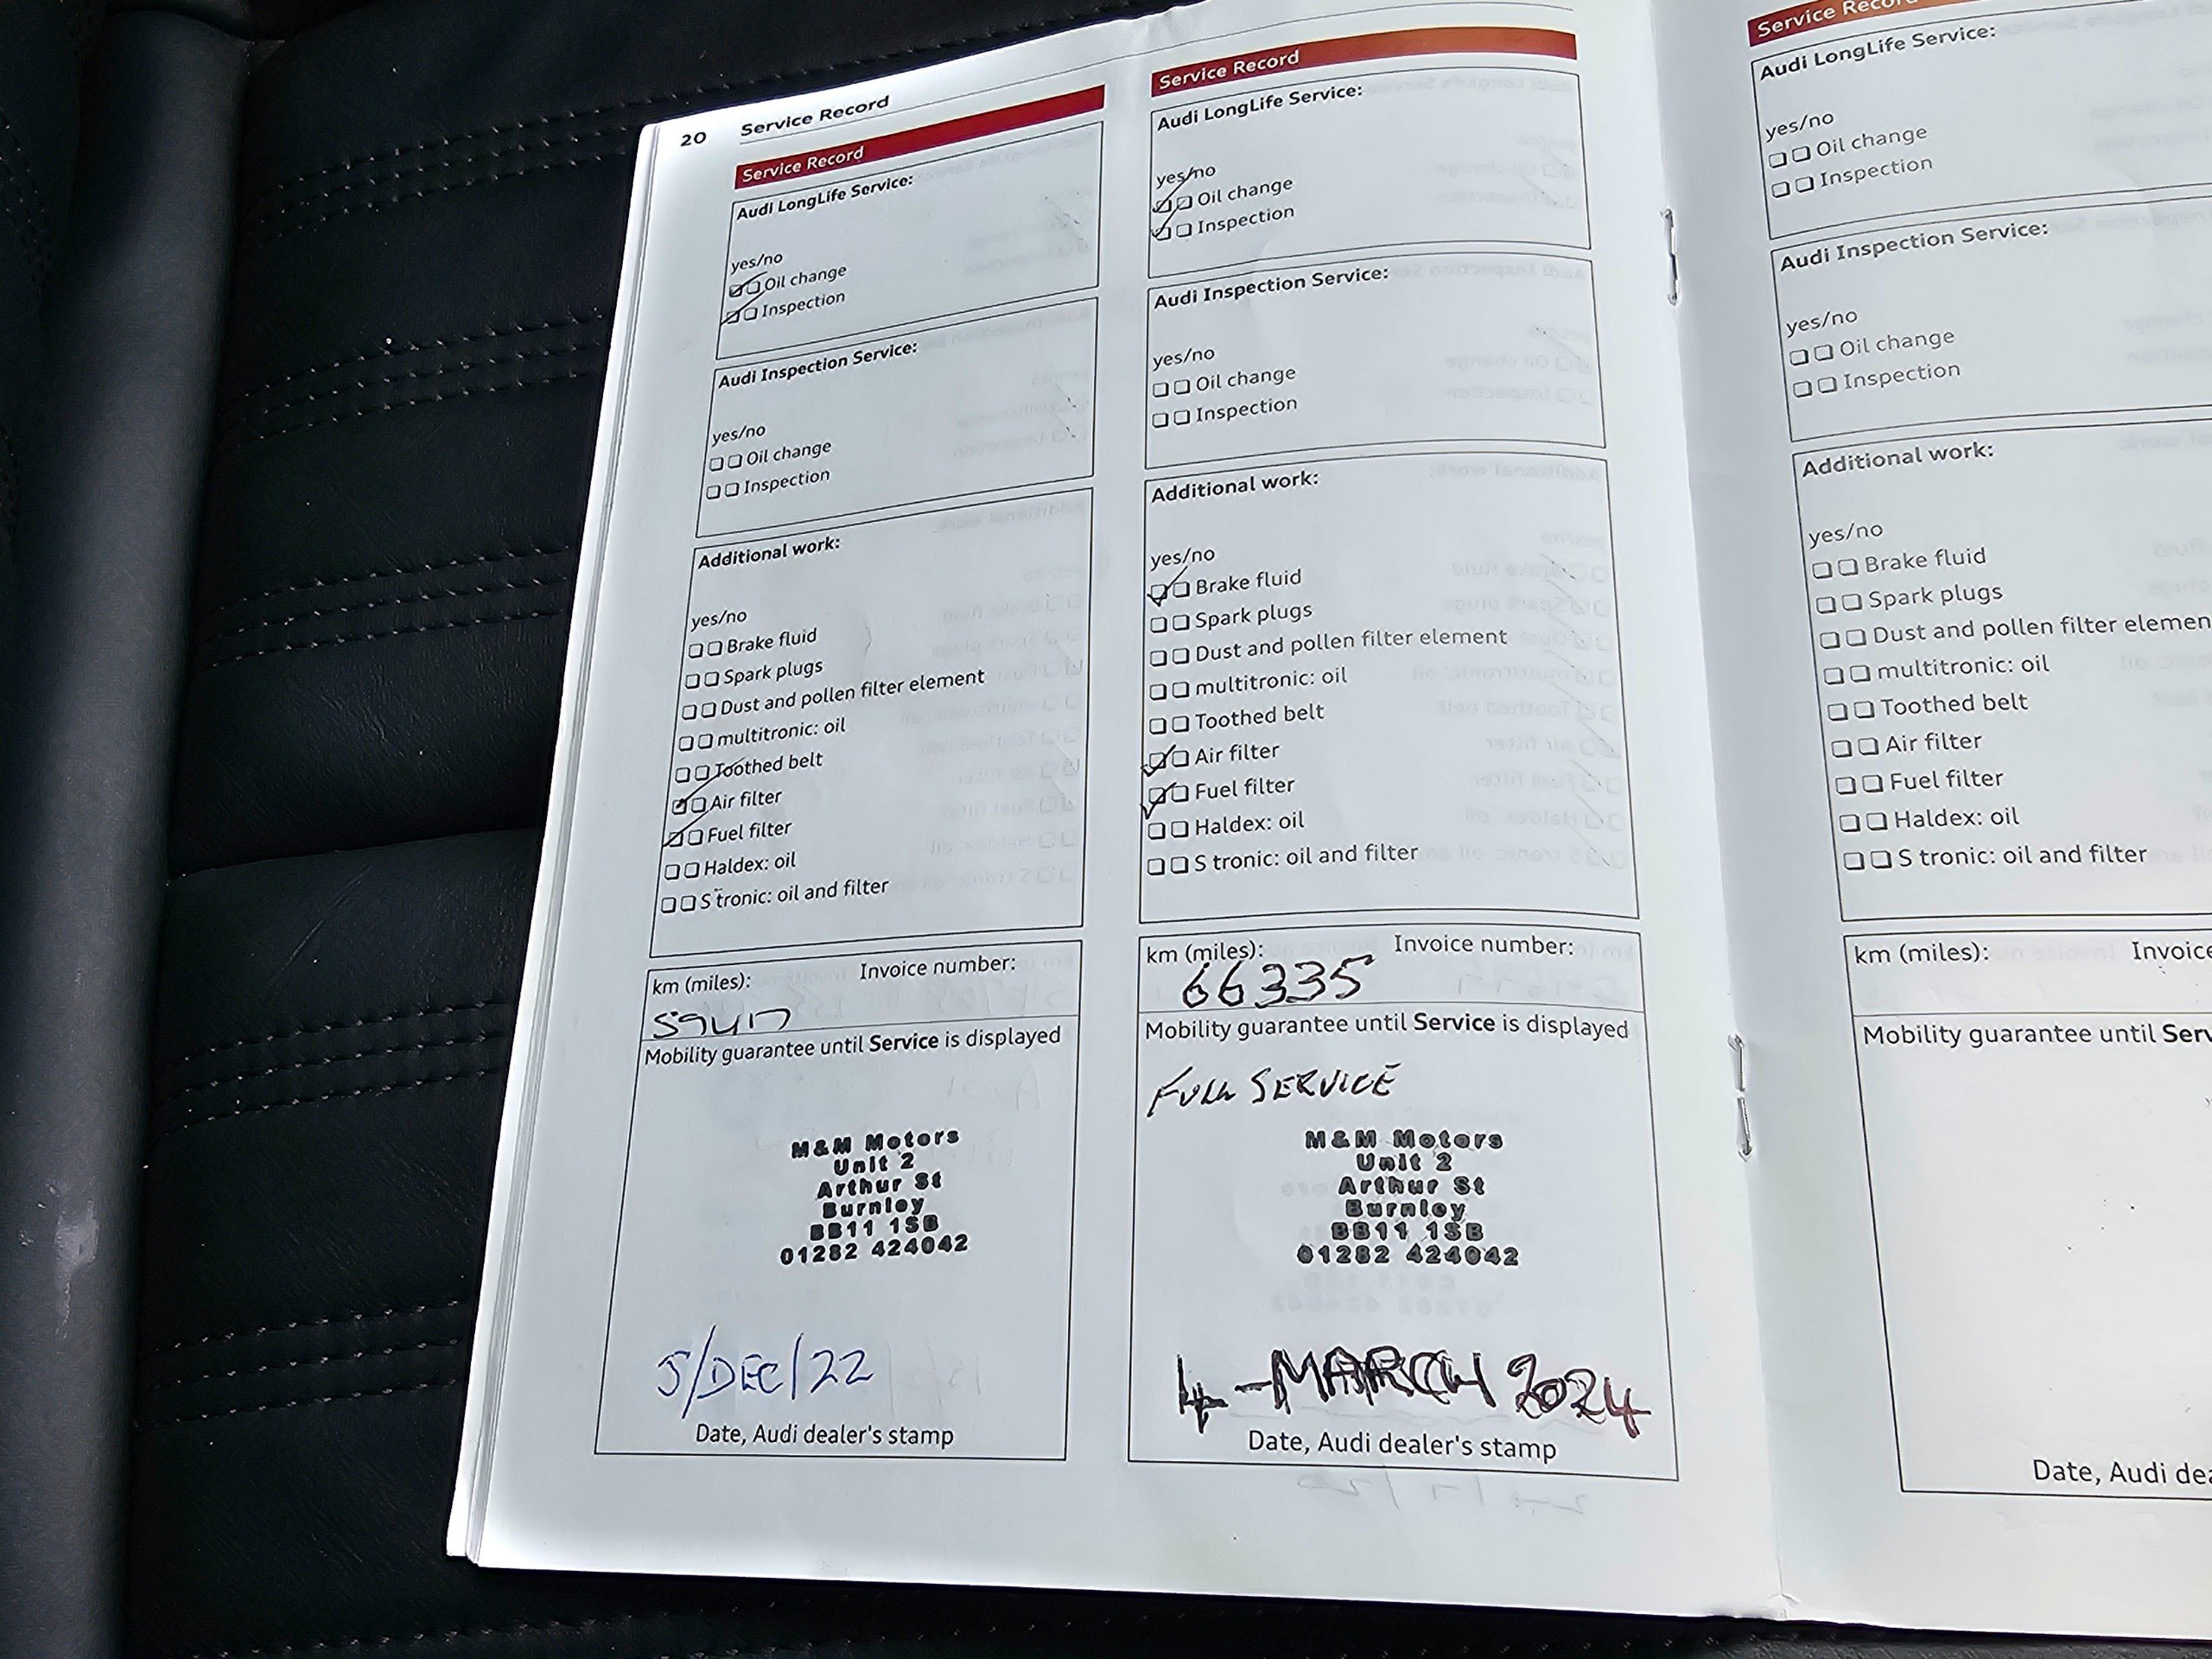 20 Service Record
Service Record
Audi LongLife Service:
yes/no
Oil change
Inspection
Audi Inspection Service:
yes/no
Oil change
Inspection
Additional work:
yes/no
Brake fluid
Spark plugs
Dust and pollen filter element
multitronic: oil
Toothed belt
Air filter
Fuel filter
Haldex: oil
S tronic: oil and filter
km (miles): Invoice number:
Mobility guarantee until Service is displayed
M&M Motors
Unit 2
Arthur St
Burnley
BB11 1SB
01282 424042
5/DEC/22
Date, Audi dealer's stamp
Service Record
Audi LongLife Service:
yes/no
Oil change
Inspection
Audi Inspection Service:
yes/no
Oil change
Inspection
Additional work:
yes/no
Brake fluid
Spark plugs
Dust and pollen filter element
multitronic: oil
Toothed belt
Air filter
Fuel filter
Haldex: oil
S tronic: oil and filter
km (miles): Invoice number:
66335
Mobility guarantee until Service is displayed
FULL SERVICE
M&M Motors
Unit 2
Arthur St
Burnley
BB11 1SB
01282 424042
4-MARCH 2024
Date, Audi dealer's stamp
Service Record
Audi LongLife Service:
yes/no
Oil change
Inspection
Audi Inspection Service:
yes/no
Oil change
Inspection
Additional work:
yes/no
Brake fluid
Spark plugs
Dust and pollen filter elemen
multitronic: oil
Toothed belt
Air filter
Fuel filter
Haldex: oil
S tronic: oil and filter
km (miles): Invoice
Mobility guarantee until Serv
Date, Audi dea